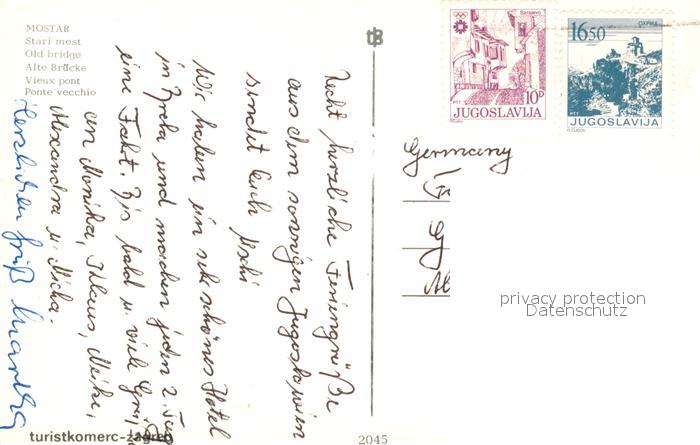 MOSTAR
Stari most
Old bridge
Alte Brücke
Vieux pont
Ponte vecchio
Recht herzliche Feriengrüße
aus dem sonnigen Jugoslawien
sendet Euch Uschi
Wir haben ein sehr schönes Hotel
in und machen jeden 2. Tag
eine Fahrt. Bis bald u. viele Grüße
von Monika, Klaus, Meike,
Alexandra u. Micha.
Herzlichen Gruß
Sarajevo
10D
PTT
JUGOSLAVIJA
ОХРИД
16.50
PTT
JUGOSLAVIJA
Germany
privacy protection
Datenschutz
turistkomerc-zagreb
2045